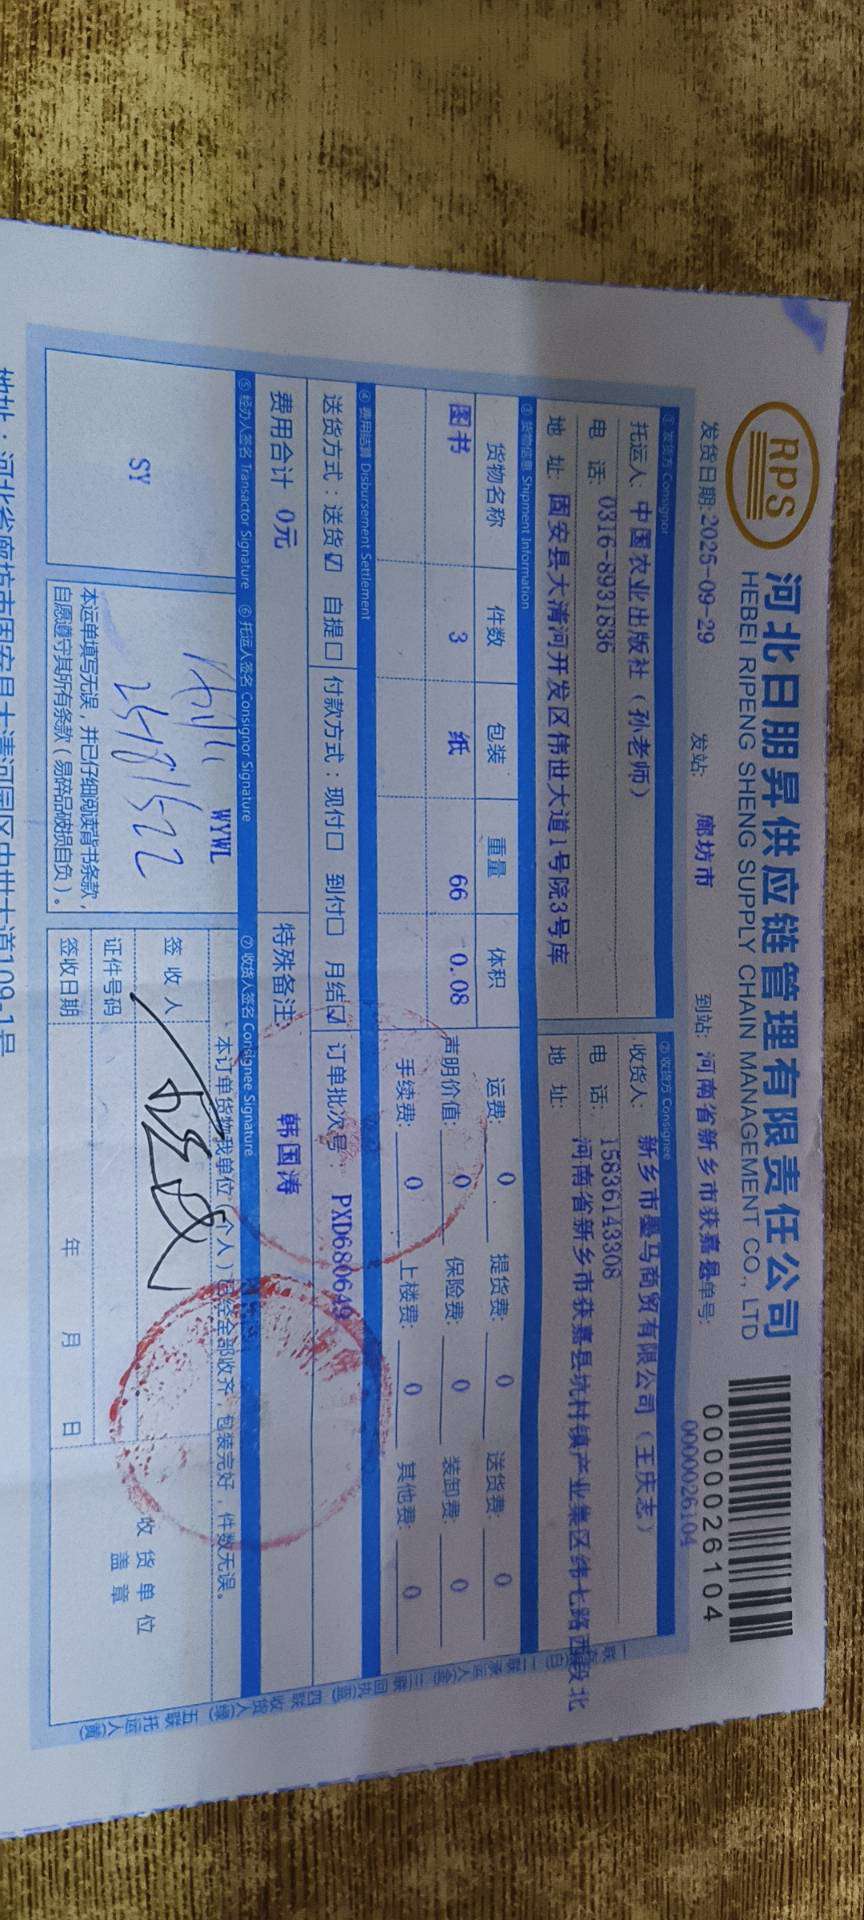 RPS
河北日朋昇供应链管理有限责任公司
HEBEI RIPENG SHENG SUPPLY CHAIN MANAGEMENT CO., LTD
0000026104
发货日期:2025-09-29 发站: 廊坊市 到站: 河南省新乡市获嘉县 单号: 0000026104
① 发货方 Consignor ② 收货方 Consignee
托运人: 中国农业出版社（孙老师） 收货人: 新乡市墨马商贸有限公司（王庆志）
电 话: 0316-8931836 电 话: 15836143308
地 址: 固安县大清河开发区伟世大道1号院3号库 地 址: 河南省新乡市获嘉县亢村镇产业集区纬七路西段北
③ 货物信息 Shipment Information
货物名称 件数 包装 重量 体积 运费: 0 提货费: 0 送货费: 0
图书 3 纸 66 0.08 声明价值: 0 保险费: 0 装卸费: 0
手续费: 0 上楼费: 0 其他费: 0
④ 费用结算 Disbursement Settlement
送货方式：送货☑ 自提☐ 付款方式：现付☐ 到付☐ 月结☑ 订单批次号： PXD680649
费用合计 0元 特殊备注: 韩国涛
⑤ 经办人签名 Transactor Signature ⑥ 托运人签名 Consignor Signature ⑦ 收货人签名 Consignee Signature
SY
WYWL
本运单填写无误，并已仔细阅读背书条款，
自愿遵守其所有条款（易碎品破损自负）。
本订单货物我单位（个人）已经全部收齐，包装完好，件数无误。
签 收 人
证件号码
签收日期 年 月 日
收 货 单 位
盖 章
地址：河北省廊坊市固安县大清河园区中世大道109-1号